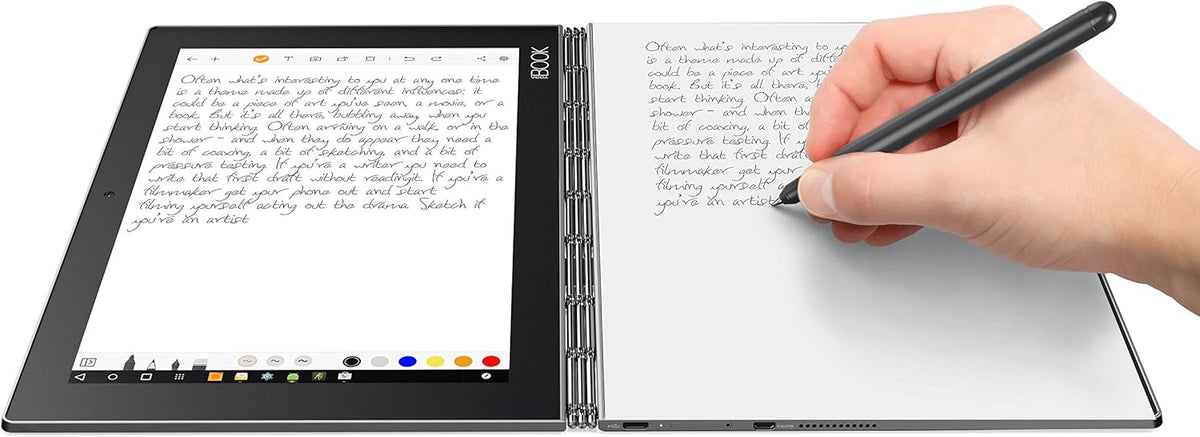 YOGA BOOK
Often what's interesting to you at any one time
is a theme made up of different influences: it
could be a piece of art you've seen, a movie, or a
book. But it's all there, bubbling away when you
start thinking. Often arriving on a walk, or in the
shower – and when they do appear they need a
bit of coaxing, a bit of sketching, and a bit of
pressure testing. If you're a writer you need to
write that first draft without readingit. If you're a
filmmaker get your phone out and start
filming yourself acting out the drama. Sketch if
you're an artist
Often what's interesting to
is a theme made up of diff
could be a piece of art you
book. But it's all there,
start thinking. Often
shower – and when
bit of coaxing, a bit of
pressure testing. If
write that first draft
filmmaker get your
filming yourself a
you're an artist